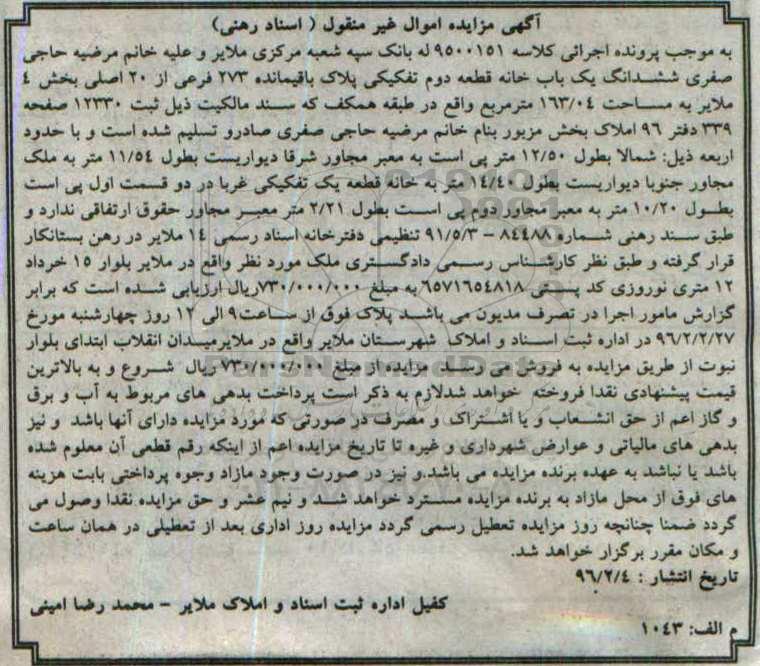 آگهی مزایده اموال غیر منقول ( اسناد رهنی)
به موجب پرونده اجرائی کلاسه ۹۵۰۰۱۵۱ له بانک سپه شعبه مرکزی ملایر و علیه خانم مرضیه حاجی
صفری ششدانگ یک باب خانه قطعه دوم تفکیکی پلاک باقیمانده ۲۷۳ فرعی از ۲۰ اصلی بخش ٤
ملایر به مساحت ۱٦۳/۰٤ مترمربع واقع در طبقه همکف که سند مالکیت ذیل ثبت ۱۲۳۳۰ صفحه
۳۳۹ دفتر ۹٦ املاک بخش مزبور بنام خانم مرضیه حاجی صفری صادرو تسلیم شده است و با حدود
اربعه ذیل: شمالا بطول ۱۲/۵۰ متر پی است به معبر مجاور شرقا دیواریست بطول ۱۱/۵٤ متر به ملک
مجاور جنوبا دیواریست بطول ۱٤/٤۰ متر به خانه قطعه یک تفکیکی غربا در دو قسمت اول پی است
بطول ۱۰/۲۰ متر به معبر مجاور دوم پی است بطول ۲/۲۱ متر معبر مجاور حقوق ارتفاقی ندارد و
طبق سند رهنی شماره ۸٤٤۸۸ – ۹۱/۵/۳ تنظیمی دفترخانه اسناد رسمی ۱٤ ملایر در رهن بستانکار
قرار گرفته و طبق نظر کارشناس رسمی دادگستری ملک مورد نظر واقع در ملایر بلوار ۱۵ خرداد
۱۲ متری نوروزی کد پستی ٦۵۷۱٦۵٤۸۱۸ به مبلغ ۷۳۰/۰۰۰/۰۰۰ریال ارزیابی شده است که برابر
گزارش مامور اجرا در تصرف مدیون می باشد پلاک فوق از ساعت۹ الی ۱۲ روز چهارشنبه مورخ
۹٦/۲/۲۷ در اداره ثبت اسناد و املاک شهرستان ملایر واقع در ملایرمیدان انقلاب ابتدای بلوار
نبوت از طریق مزایده به فروش می رسد مزایده از مبلغ ۷۳۰/۰۰۰/۰۰۰ ریال شروع و به بالاترین
قیمت پیشنهادی نقدا فروخته خواهد شدلازم به ذکر است پرداخت بدهی های مربوط به آب و برق
و گاز اعم از حق انشعاب و یا اشتراک و مصرف در صورتی که مورد مزایده دارای آنها باشد و نیز
بدهی های مالیاتی و عوارض شهرداری و غیره تا تاریخ مزایده اعم از اینکه رقم قطعی آن معلوم شده
باشد یا نباشد به عهده برنده مزایده می باشد.و نیز در صورت وجود مازاد وجوه پرداختی بابت هزینه
های فوق از محل مازاد به برنده مزایده مسترد خواهد شد و نیم عشر و حق مزایده نقدا وصول می
گردد ضمنا چنانچه روز مزایده تعطیل رسمی گردد مزایده روز اداری بعد از تعطیلی در همان ساعت
و مکان مقرر برگزار خواهد شد.
تاریخ انتشار : ۹٦/۲/٤
کفیل اداره ثبت اسناد و املاک ملایر – محمد رضا امینی
م الف: ۱۰٤۳